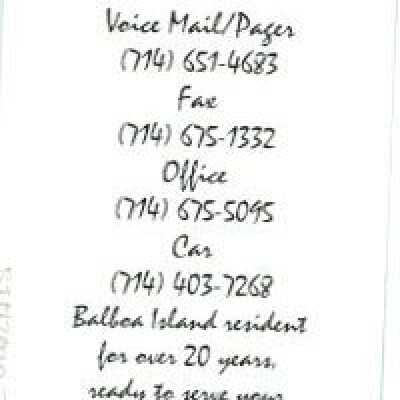 Voice Mail/Pager
(714) 651-4683
Fax
(714) 675-1332
Office
(714) 675-5095
Car
(714) 403-7268
Balboa Island resident
for over 20 years,
ready to serve your